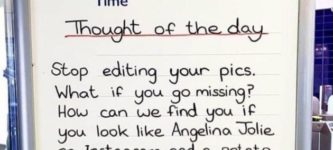 Time
Thought of the day
Stop editing your pics.
What if you go missing?
How can we find you if
you look like Angelina Jolie
on Instagram and a potato